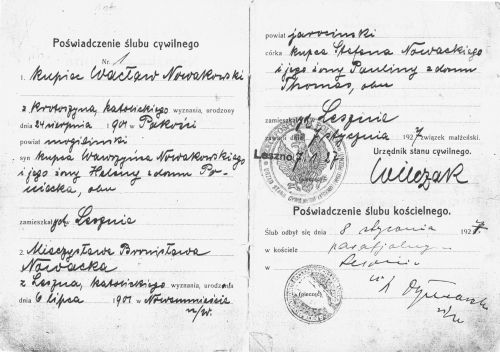 Poświadczenie ślubu cywilnego
Nr. 1
1. kupiec Wacław Nowakowski
z Krotoszyna, katolickiego wyznania, urodzony
dnia 24 sierpnia 1901 w Pakości
powiat mogilnicki
syn kupca Wawrzyna Nowakowskiego
i jego żony Heleny z domu
zamieszkał w Lesznie
2. Mieczysława Bronisława
Nowacka
z Leszna, katolickiego wyznania, urodzona
dnia 6 lipca 1901 w Nowemmieście
n/W.
powiat jarociński
córka kupca Stefana Nowackiego
i jego żony Pauliny z domu
Thomas,
zamieszkał w Lesznie
zawarli dnia 7 stycznia 1927 związek małżeński.
Leszno 7.1.27
Urzędnik stanu cywilnego.
Wilczak
Poświadczenie ślubu kościelnego.
Ślub odbył się dnia 8 stycznia 1927
w kościele parafjalnym
w Lesznie
(pieczęć)